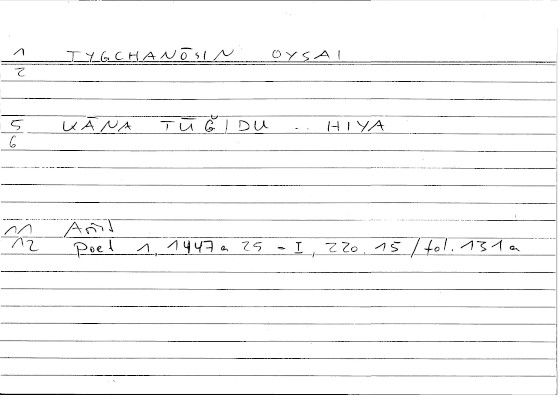 1 TYGCHANŌSIN OYSAI
2
5 KĀNA TŪĞIDU .. HIYA
6
11 Arist
12 Poet 1, 1447a 25 - I, 220.15 / fol. 131a